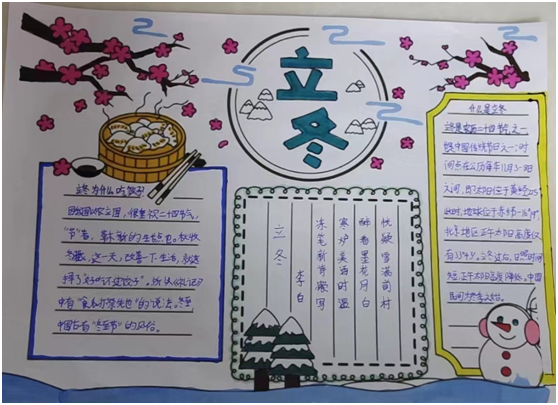 立冬
立冬为什么吃饺子
因我国以农立国，很重视二十四节气，
"节"者，草木新的生长点也。秋收
冬藏，这一天，改善一下生活，就选
择了"好吃不过饺子"。所以《礼记》
中有的说法。冬至
中国古有"冬至节"的风俗。
立冬
李白
冻笔新诗懒写
寒炉美酒时温
醉看墨花月白
恍疑雪满前村
什么是立冬
立冬是二十四节气之一
也是中国传统节日之一；时
间点在公历每年11月7-8日
之间，即太阳位于黄经225°
此时，地球位于赤纬-16°19'，
北京地区正午太阳高度仅
有。立冬过后，日照时间
短，正午太阳高度降低。中国
民间为冬入始。